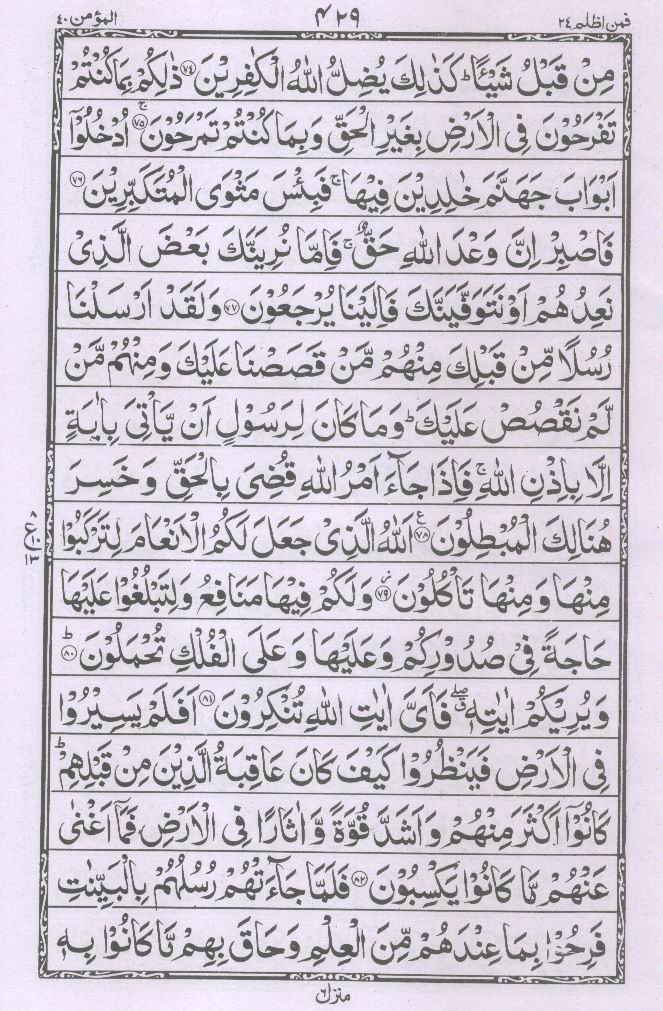 فمن اظلم ٢٤ ۴۲۹ المؤمن ٤٠
مِنْ قَبْلُ شَيْـًٔا ؕ كَذٰلِكَ يُضِلُّ اللّٰهُ الْكٰفِرِيْنَ ﴿۷۴﴾ ذٰلِكُمْ بِمَا كُنْتُمْ
تَفْرَحُوْنَ فِى الْاَرْضِ بِغَيْرِ الْحَقِّ وَبِمَا كُنْتُمْ تَمْرَحُوْنَ ﴿۷۵﴾ۚ اُدْخُلُوْٓا
اَبْوَابَ جَهَنَّمَ خٰلِدِيْنَ فِيْهَا ۚ فَبِئْسَ مَثْوَى الْمُتَكَبِّرِيْنَ ﴿۷۶﴾
فَاصْبِرْ اِنَّ وَعْدَ اللّٰهِ حَقٌّ ۚ فَاِمَّا نُرِيَنَّكَ بَعْضَ الَّذِىْ
نَعِدُهُمْ اَوْ نَتَوَفَّيَنَّكَ فَاِلَيْنَا يُرْجَعُوْنَ ﴿۷۷﴾ وَلَقَدْ اَرْسَلْنَا
رُسُلًا مِّنْ قَبْلِكَ مِنْهُمْ مَّنْ قَصَصْنَا عَلَيْكَ وَمِنْهُمْ مَّنْ
لَّمْ نَقْصُصْ عَلَيْكَ ؕ وَمَا كَانَ لِرَسُوْلٍ اَنْ يَّاْتِىَ بِاٰيَةٍ
اِلَّا بِاِذْنِ اللّٰهِ ۚ فَاِذَا جَآءَ اَمْرُ اللّٰهِ قُضِىَ بِالْحَقِّ وَخَسِرَ
هُنَالِكَ الْمُبْطِلُوْنَ ﴿۷۸﴾ اَللّٰهُ الَّذِىْ جَعَلَ لَكُمُ الْاَنْعَامَ لِتَرْكَبُوْا
مِنْهَا وَمِنْهَا تَاْكُلُوْنَ ﴿۷۹﴾ وَلَكُمْ فِيْهَا مَنَافِعُ وَلِتَبْلُغُوْا عَلَيْهَا
حَاجَةً فِىْ صُدُوْرِكُمْ وَعَلَيْهَا وَعَلَى الْفُلْكِ تُحْمَلُوْنَ ﴿۸۰﴾ؕ
وَيُرِيْكُمْ اٰيٰتِهٖ ۖ فَاَىَّ اٰيٰتِ اللّٰهِ تُنْكِرُوْنَ ﴿۸۱﴾ اَفَلَمْ يَسِيْرُوْا
فِى الْاَرْضِ فَيَنْظُرُوْا كَيْفَ كَانَ عَاقِبَةُ الَّذِيْنَ مِنْ قَبْلِهِمْ ؕ
كَانُوْٓا اَكْثَرَ مِنْهُمْ وَاَشَدَّ قُوَّةً وَّاٰثَارًا فِى الْاَرْضِ فَمَآ اَغْنٰى
عَنْهُمْ مَّا كَانُوْا يَكْسِبُوْنَ ﴿۸۲﴾ فَلَمَّا جَآءَتْهُمْ رُسُلُهُمْ بِالْبَيِّنٰتِ
فَرِحُوْا بِمَا عِنْدَهُمْ مِّنَ الْعِلْمِ وَحَاقَ بِهِمْ مَّا كَانُوْا بِهٖ
منزل ٦